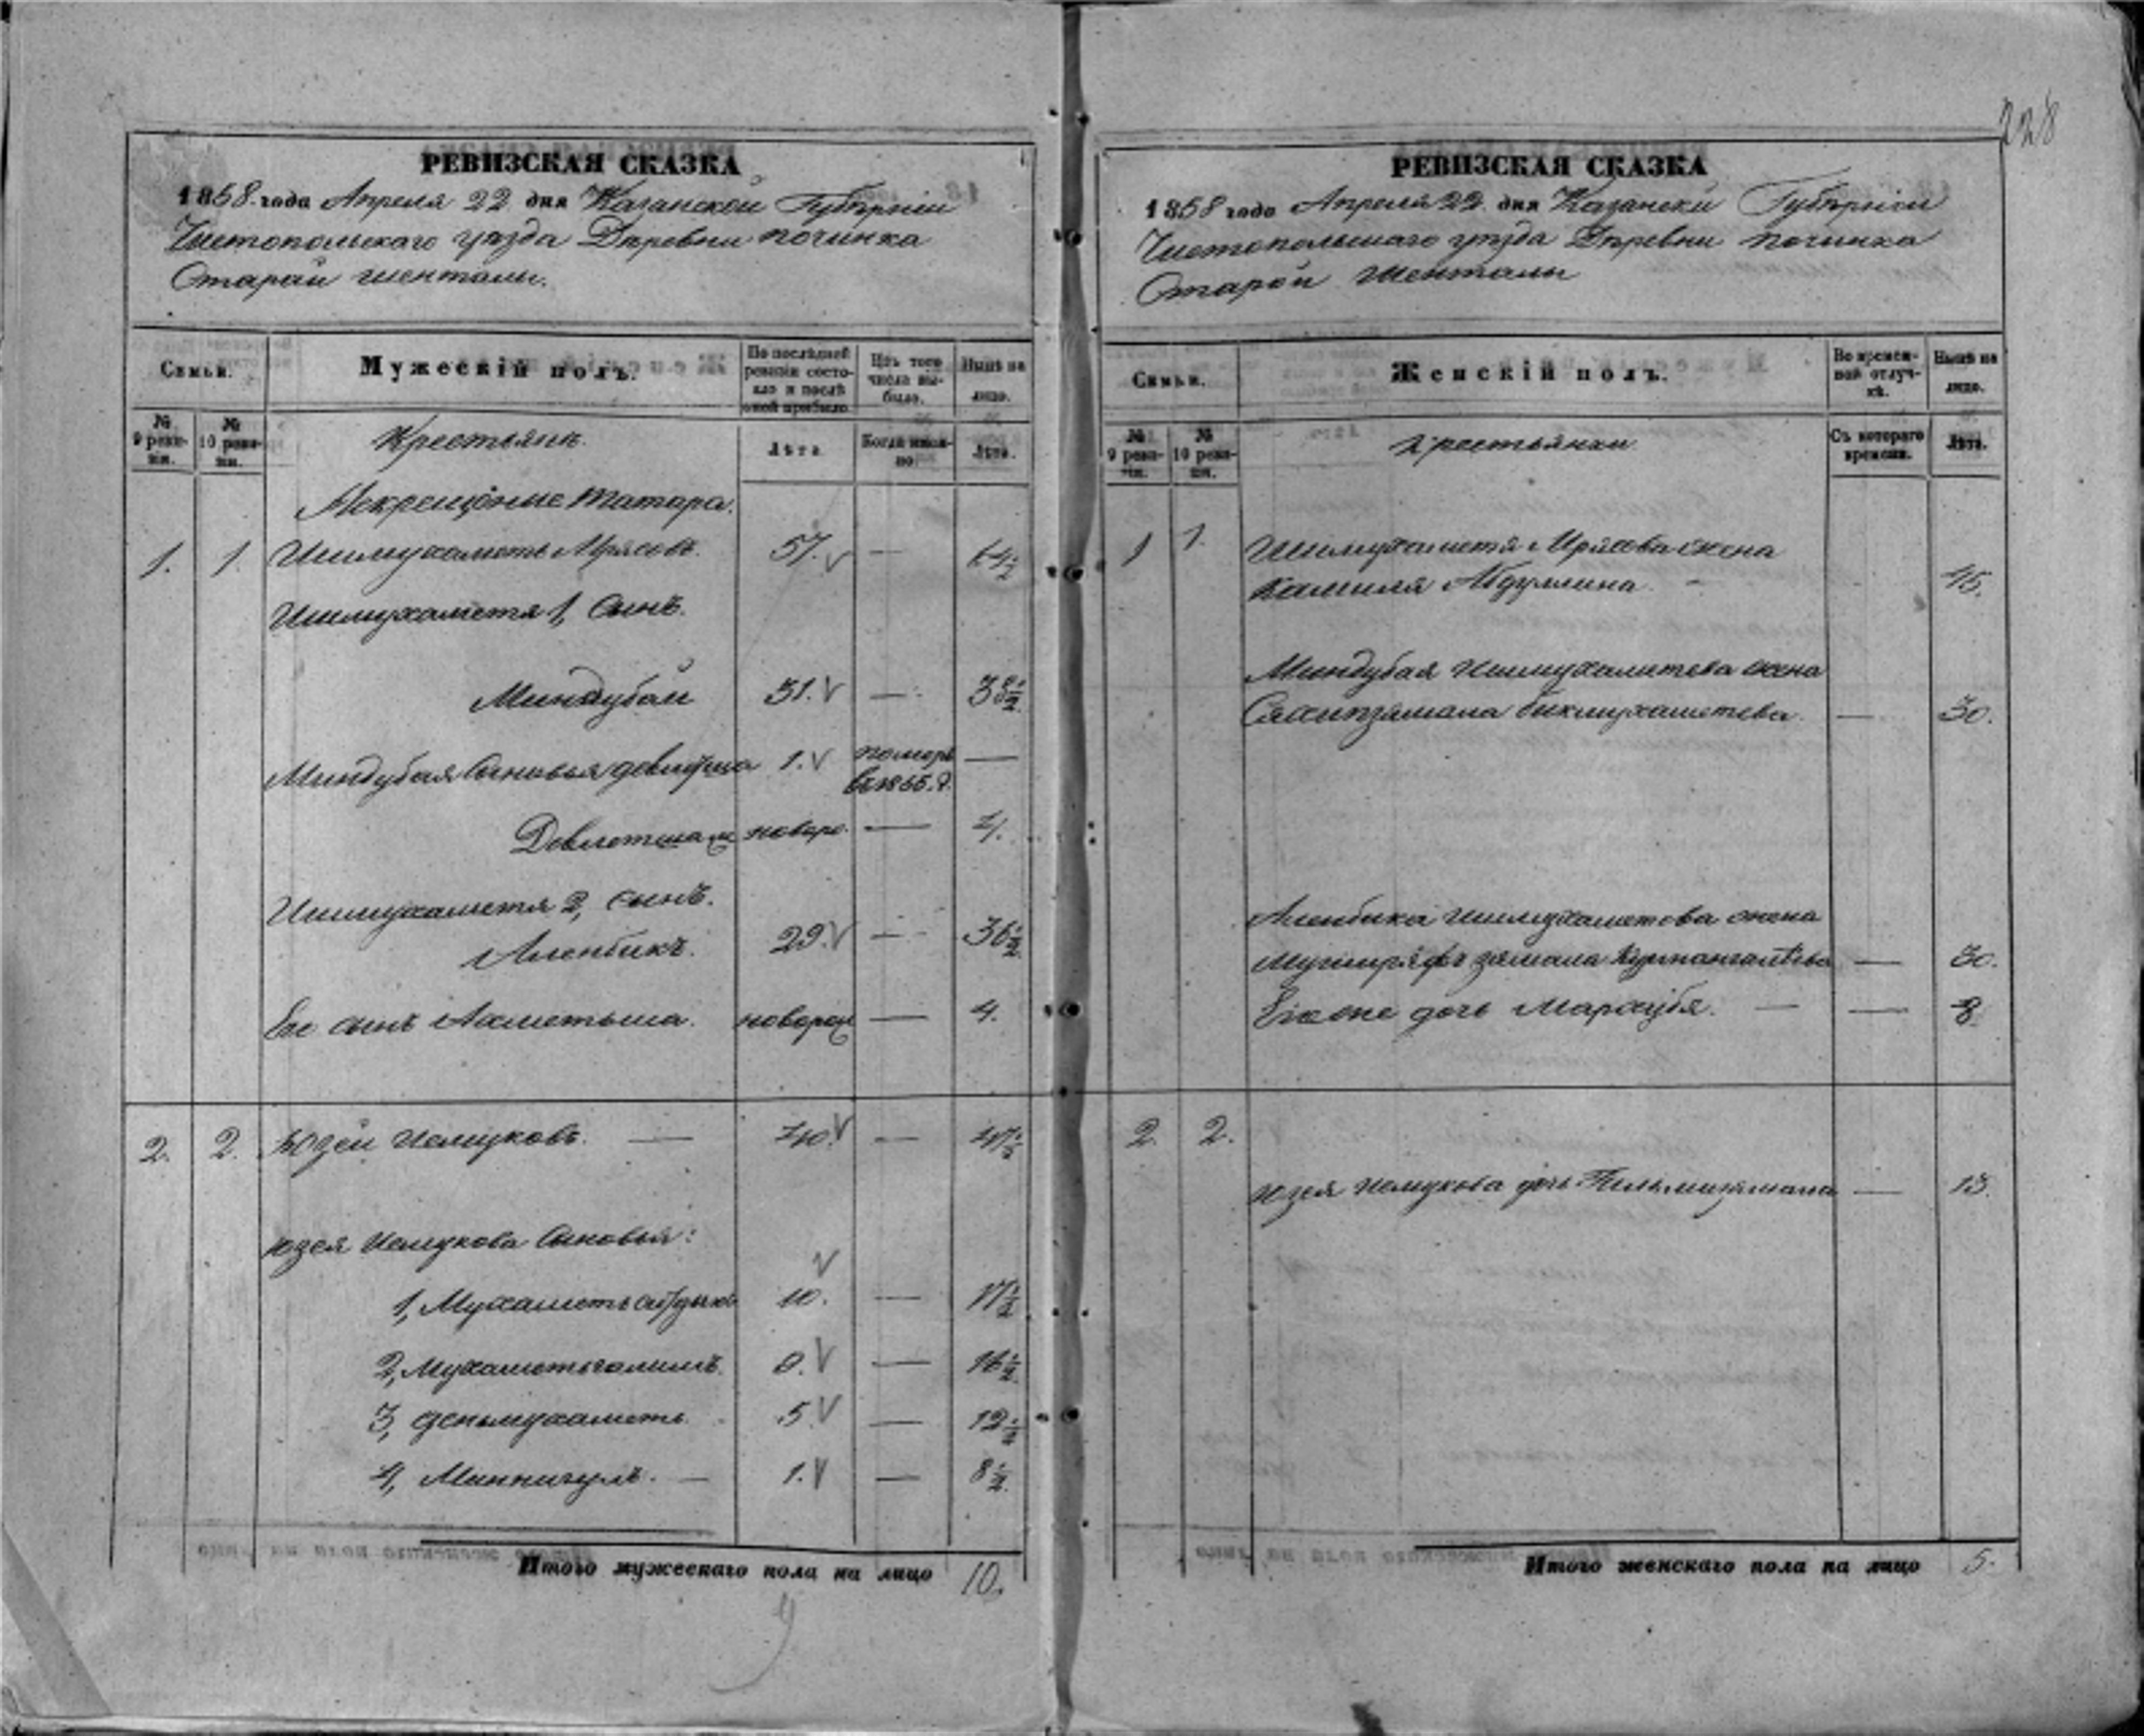 228
РЕВИЗСКАЯ СКАЗКА
1858 года Апреля 22 дня Казанской Губернии
Чистопольскаго уезда Деревни починка
Старай шенталы.
Семьи.
Мужескій полъ.
По послѣдней ревизіи состояло и послѣ оной прибыло.
Изъ того числа выбыло.
Нынѣ на лицо.
№ 9 ревизіи.
№ 10 ревизіи.
Крестьянъ.
Лѣта.
Когда именно
Лѣта.
Некрещоные татара.
1. 1. Ишмухаметь Мрясовъ. 57. — 64½
Ишмухаметя 1, Сынъ.
Миндубай 31. — 38½
Миндубая Сыновья 1. померъ —
въ 1855.г.
Девлетша новоро. — 4.
Ишмухаметя 2, сынъ.
Аленбикъ. 29. — 36½
Ево сынъ Ахметьша. новорож — 4.
2. 2. Юзей Исмуковъ. — 40. — 47½
юзея Исмукова Сыновья:
1, Мухаметь 10. — 17½
2, Мухаметьгалимъ. 9. — 16½
3, деньмухаметь. 5. — 12½
4, Миннигулъ. — 1. — 8½
Итого мужескаго пола на лицо 10.
9
РЕВИЗСКАЯ СКАЗКА
1858 года Апреля 22 дня Казански Губернии
Чистопольскаго уезда Деревни починка
Старой шенталы
Семьи.
Женскій полъ.
Во временной отлучкѣ.
Нынѣ на лицо.
№ 9 ревизіи.
№ 10 ревизіи.
крестьянки
Съ котораго времени.
Лѣта.
1 1. Ишмухаметя Мрясова жена
Камиля Абдуллина. — 45.
Миндубая Ишмухаметева жена
бикмухаметева. — 30.
Аленбика ишмухаметова жена
зямала Курмангалѣева — 30.
Ево же дочь — — 8.
2. 2.
юзея Исмукова дочь — 13.
Итого женскаго пола на лицо 5.